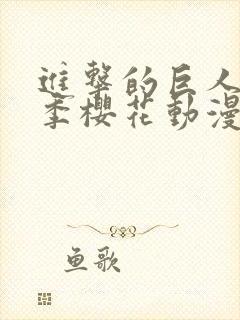 進擊的巨人
季櫻花動漫
鱼歌